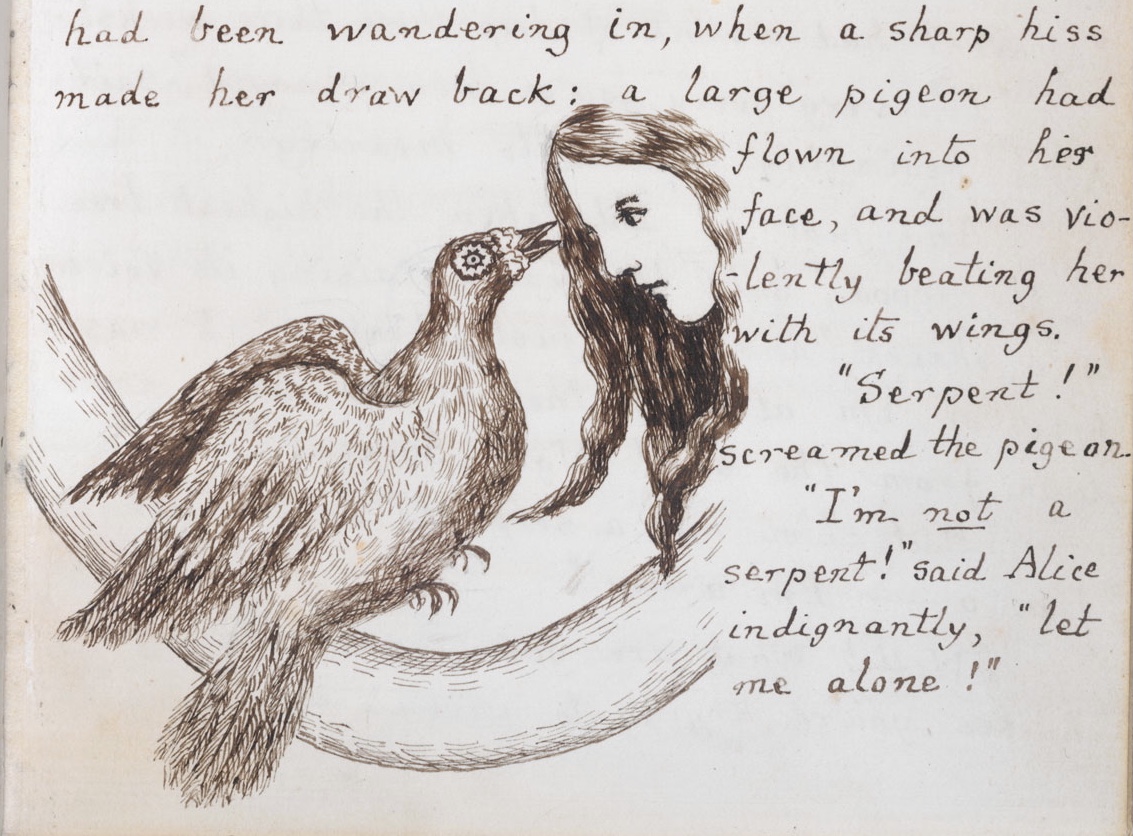 had been wandering in, when a sharp hiss
made her draw back: a large pigeon had
flown into her
face, and was vio-
-lently beating her
with its wings.
"Serpent!"
screamed the pigeon.
"I'm not a
serpent!" said Alice
indignantly, "let
me alone!"